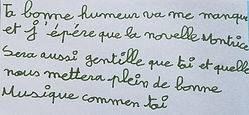 Ta bonne humeur va me manqu
et j'épére que la novelle Montrice
Sera aussi gentille que toi et quelle
nous mettera plein de bonne
Musique commen toi